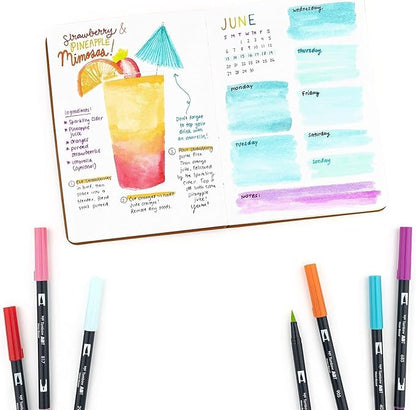 Strawberry &
PINEAPPLE
Mimosas!
Ingredients:
Sparkling Cider
Pineapple
juice
oranges
pureed
strawberries
Don't forget
to top your
drink with
an umbrella!
1 Cut strawberries
in half, then
place into a
blender. Blend
until pureed.
2 Cut oranges in half.
Juice oranges!
Remove any pods.
3 Pour strawberry
puree first
Then orange
juice, followed
by the Sparkling
Cider. Top it
off with some
pineapple
juice!
JUNE
S M T W T F S
1 2 3 4 5
6 7 8 9 10 11 12
13 14 15 16 17 18 19
20 21 22 23 24 25 26
27 28 29 30
monday
Tuesday
Wednesday
thursday
Friday
Saturday
Sunday
NOTES: